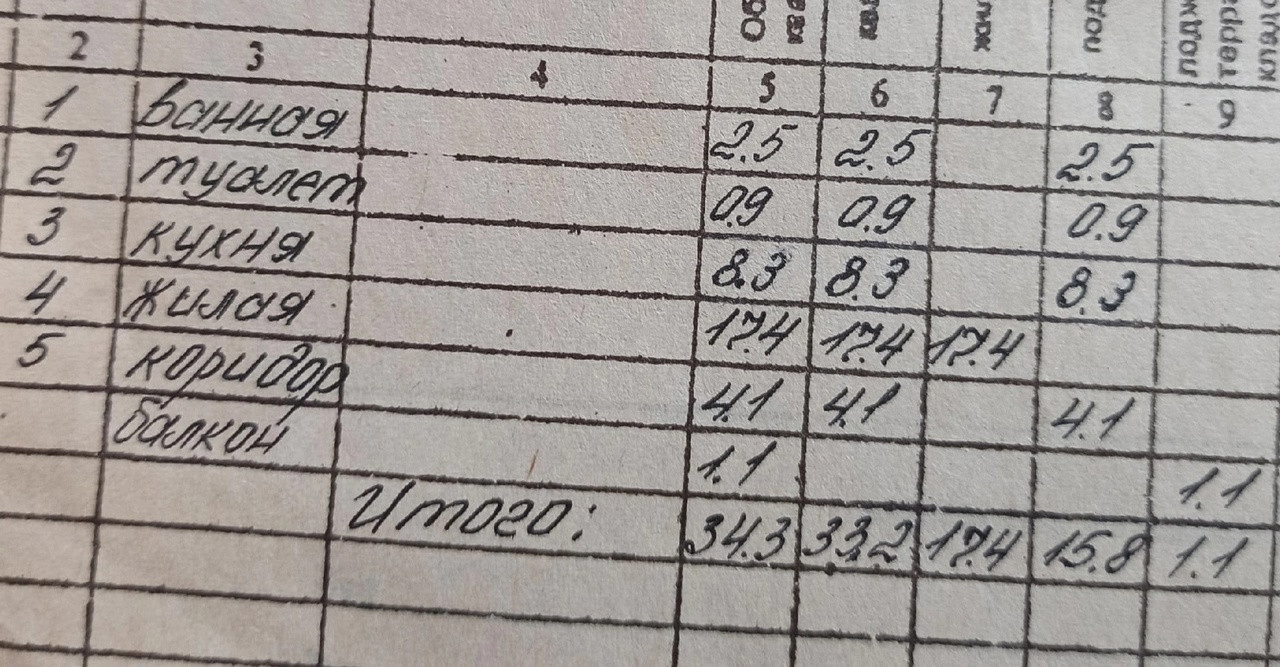 2 3 4 5 6 7 8 9
1 ванная 2.5 2.5 2.5
2 туалет 0.9 0.9 0.9
3 кухня 8.3 8.3 8.3
4 жилая 17.4 17.4 17.4
5 коридор 4.1 4.1 4.1
балкон 1.1 1.1
Итого: 34.3 33.2 17.4 15.8 1.1